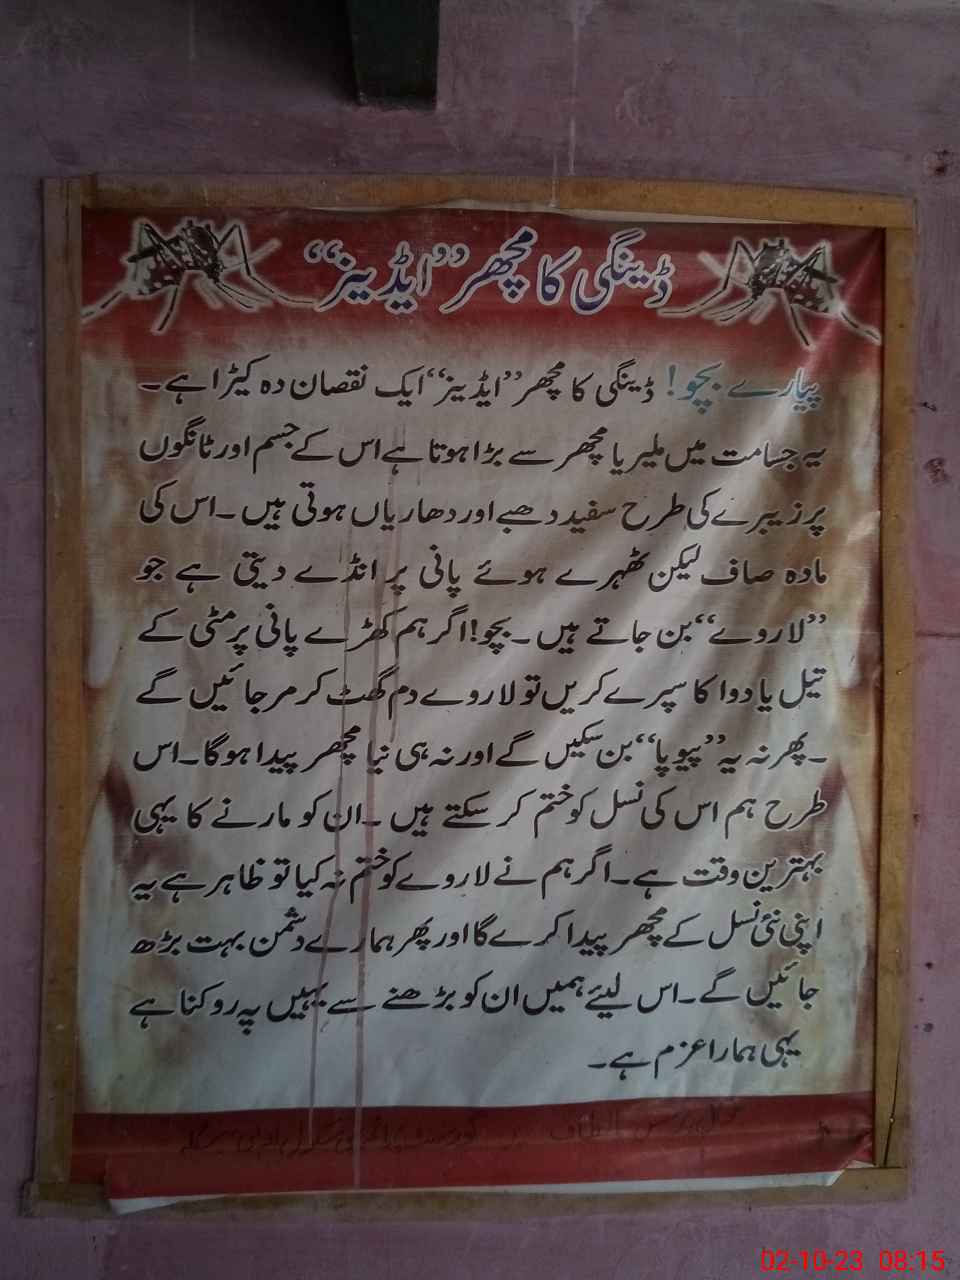 ڈینگی کا مچھر ”ایڈیز“
پیارے بچو! ڈینگی کا مچھر ”ایڈیز“ ایک نقصان دہ کیڑا ہے۔
یہ جسامت میں ملیریا مچھر سے بڑا ہوتا ہے اس کے جسم اور ٹانگوں
پر زیبرے کی طرح سفید دھبے اور دھاریاں ہوتی ہیں۔ اس کی
مادہ صاف لیکن ٹھہرے ہوئے پانی پر انڈے دیتی ہے جو
”لاروے“ بن جاتے ہیں۔ بچو! اگر ہم کھڑے پانی پر مٹی کے
تیل یا دوا کا سپرے کریں تو لاروے دم گھٹ کر مر جائیں گے
۔ پھر نہ یہ ”پیوپا“ بن سکیں گے اور نہ ہی نیا مچھر پیدا ہوگا۔ اس
طرح ہم اس کی نسل کو ختم کر سکتے ہیں ۔ ان کو مارنے کا یہی
بہترین وقت ہے۔ اگر ہم نے لاروے کو ختم نہ کیا تو ظاہر ہے یہ
اپنی نئی نسل کے مچھر پیدا کرے گا اور پھر ہمارے دشمن بہت بڑھ
جائیں گے۔ اس لیئے ہمیں ان کو بڑھنے سے یہیں پہ روکنا ہے
یہی ہمارا عزم ہے۔
02-10-23 08:15